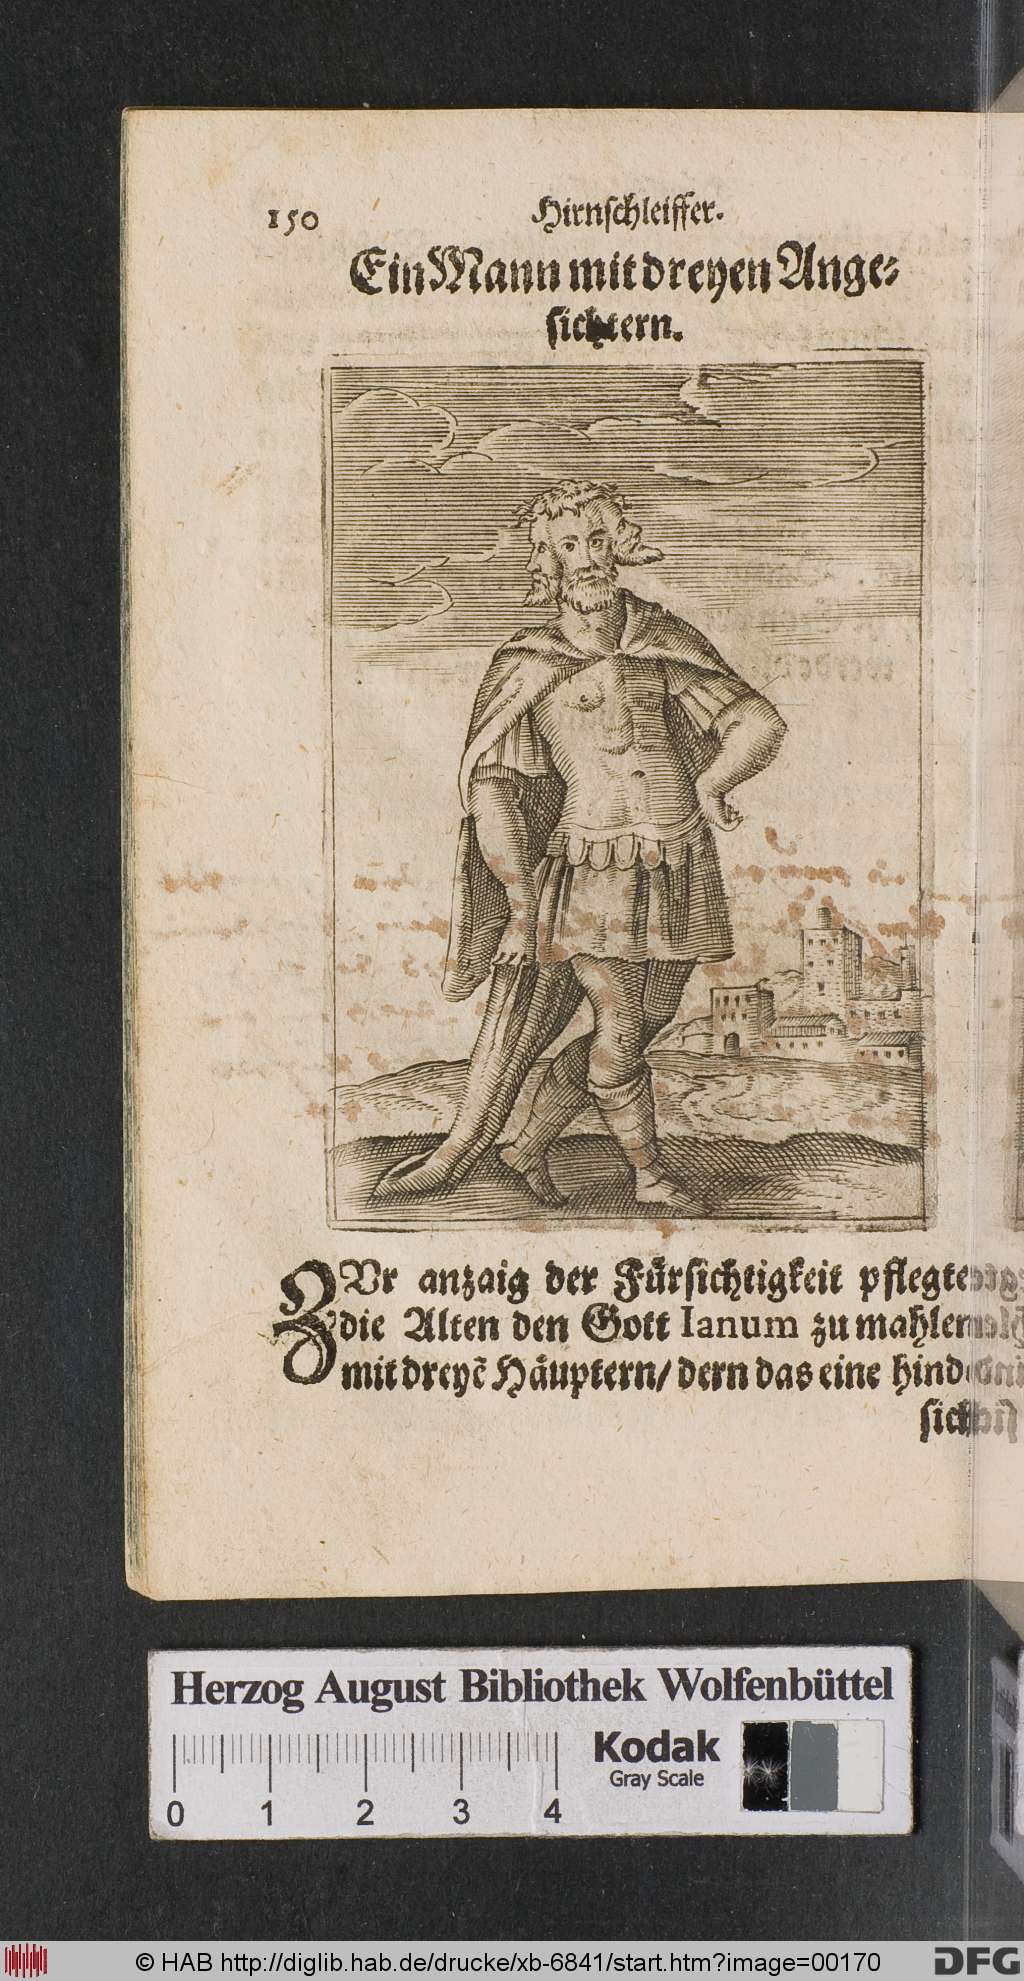 150
Hirnschleiffer.
Ein Mann mit dreyen Ange-
sichtern.
ZUr anzaig der Fürsichtigkeit pflegten
die Alten den Gott Ianum zu mahlen
mit dreyē Häuptern / dern das eine hinder
sich
Herzog August Bibliothek Wolfenbüttel
Kodak
Gray Scale
0 1 2 3 4
© HAB http://diglib.hab.de/drucke/xb-6841/start.htm?image=00170
DFG